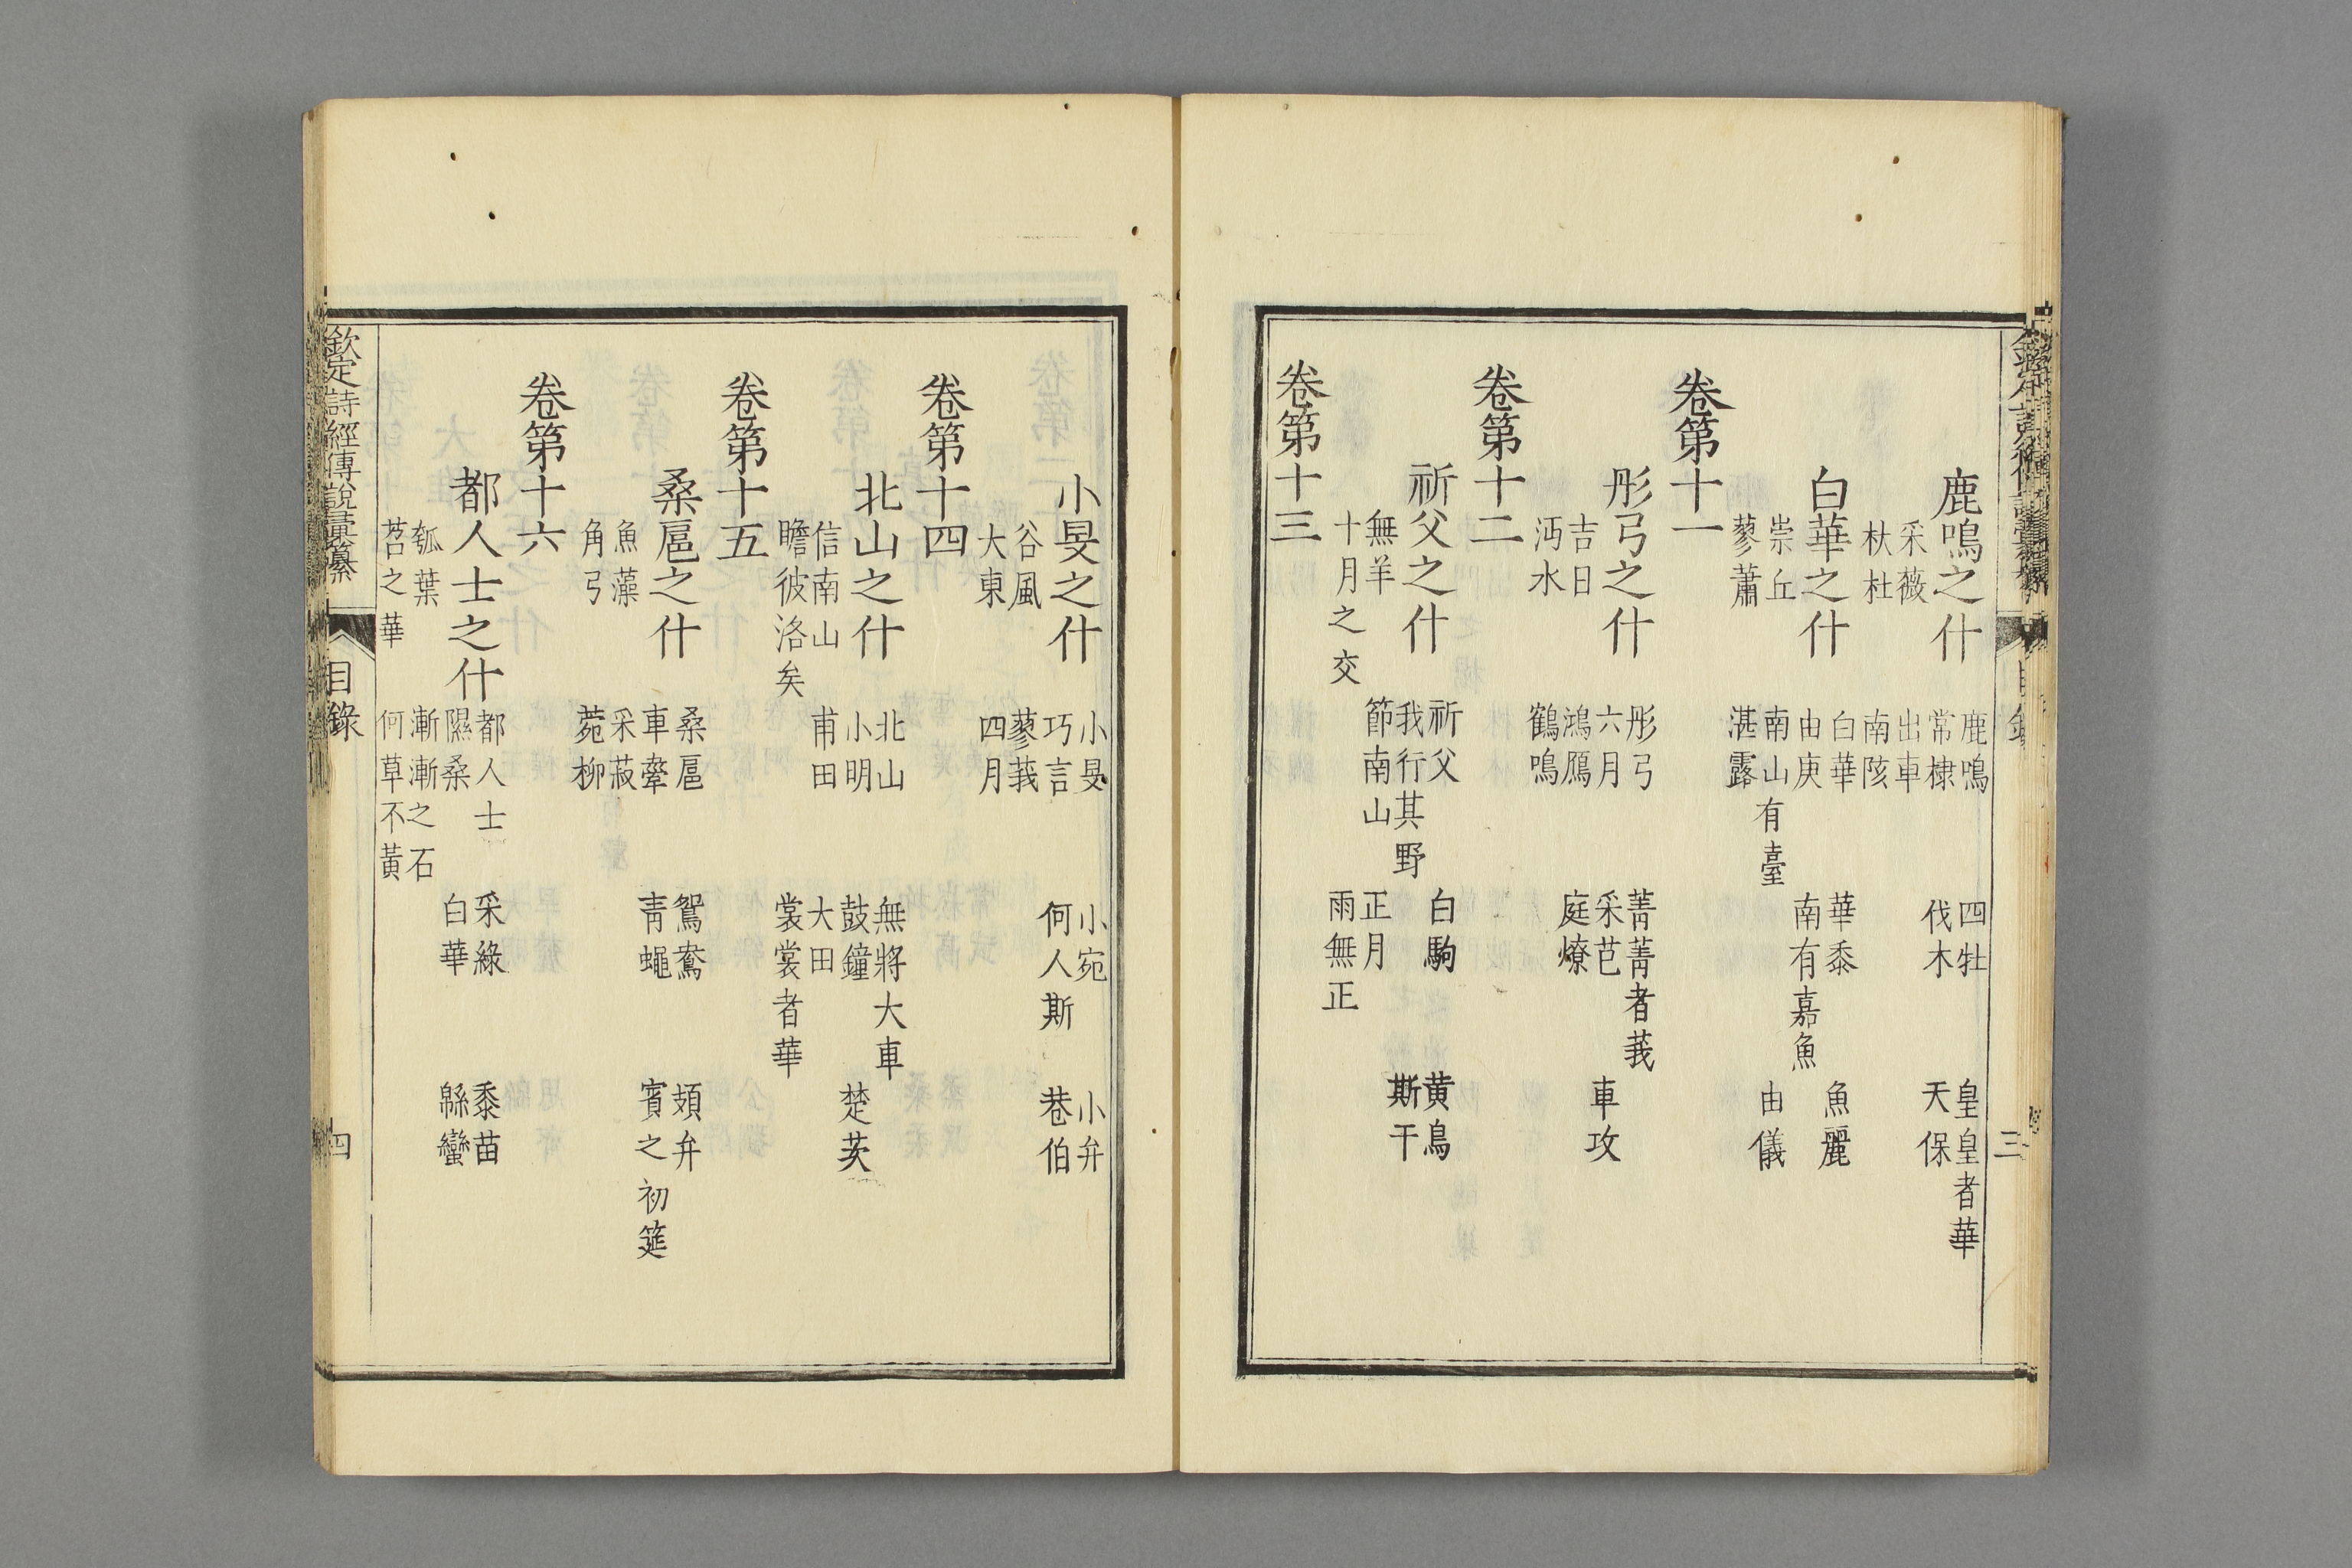 鹿鳴之什 鹿鳴 四牡 皇皇者華
常棣 伐木 天保
采薇 出車
杕杜 南陔
白華之什 白華 華黍 魚麗
由庚 南有嘉魚
崇丘 南山有臺 由儀
蓼蕭 湛露
卷第十一
彤弓之什 彤弓 菁菁者莪
六月 采芑 車攻
吉日 鴻鴈 庭燎
沔水 鶴鳴
卷第十二
祈父之什 祈父 白駒 黃鳥
我行其野 斯干
無羊 節南山 正月
十月之交 雨無正
卷第十三
小旻之什 小旻 小宛 小弁
巧言 何人斯 巷伯
谷風 蓼莪
大東 四月
卷第十四
北山之什 北山 無將大車
小明 鼓鐘 楚茨
信南山 甫田 大田
瞻彼洛矣 裳裳者華
卷第十五
桑扈之什 桑扈 鴛鴦 頍弁
車舝 青蠅 賓之初筵
魚藻 采菽
角弓 菀柳
卷第十六
都人士之什 都人士 采綠 黍苗
隰桑 白華 緜蠻
瓠葉 漸漸之石
苕之華 何草不黃
欽定詩經傳說彙纂 目錄 四